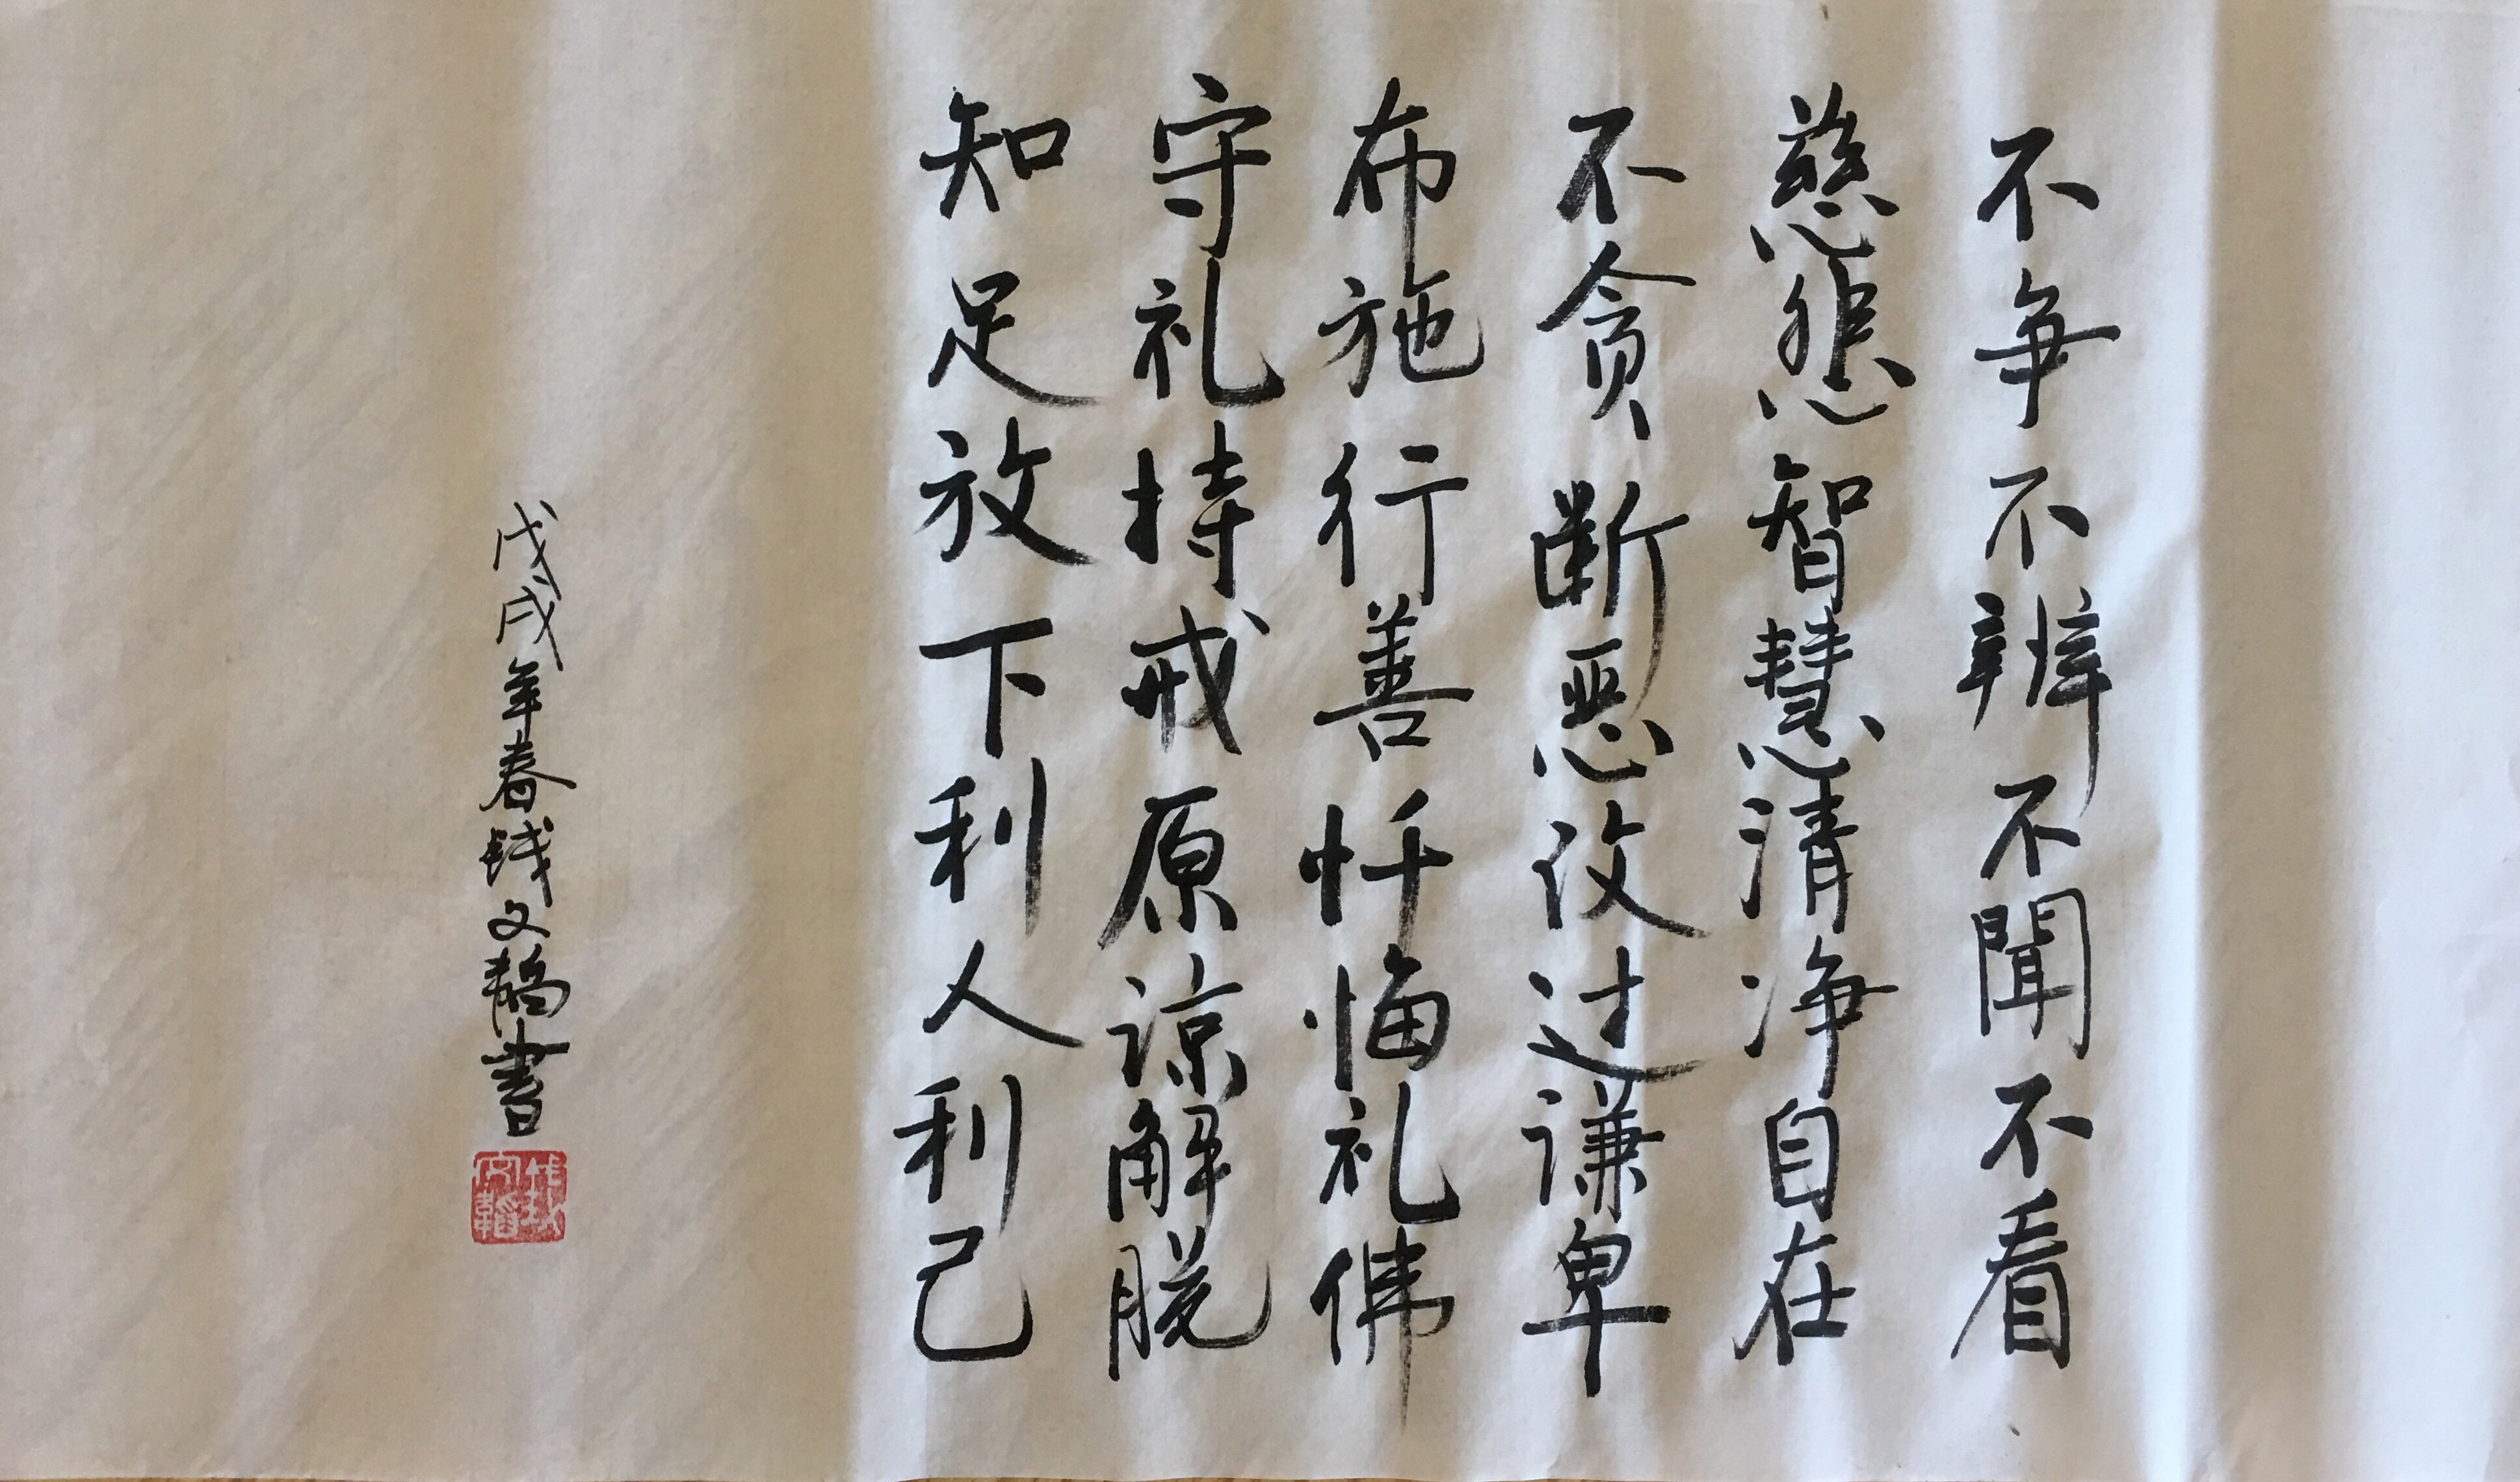 不争不辨不聞不看
慈悲智慧清净自在
不贪断恶改过谦卑
布施行善忏悔礼佛
守礼持戒原谅解脱
知足放下利人利己
戊戌年春钱文韜書